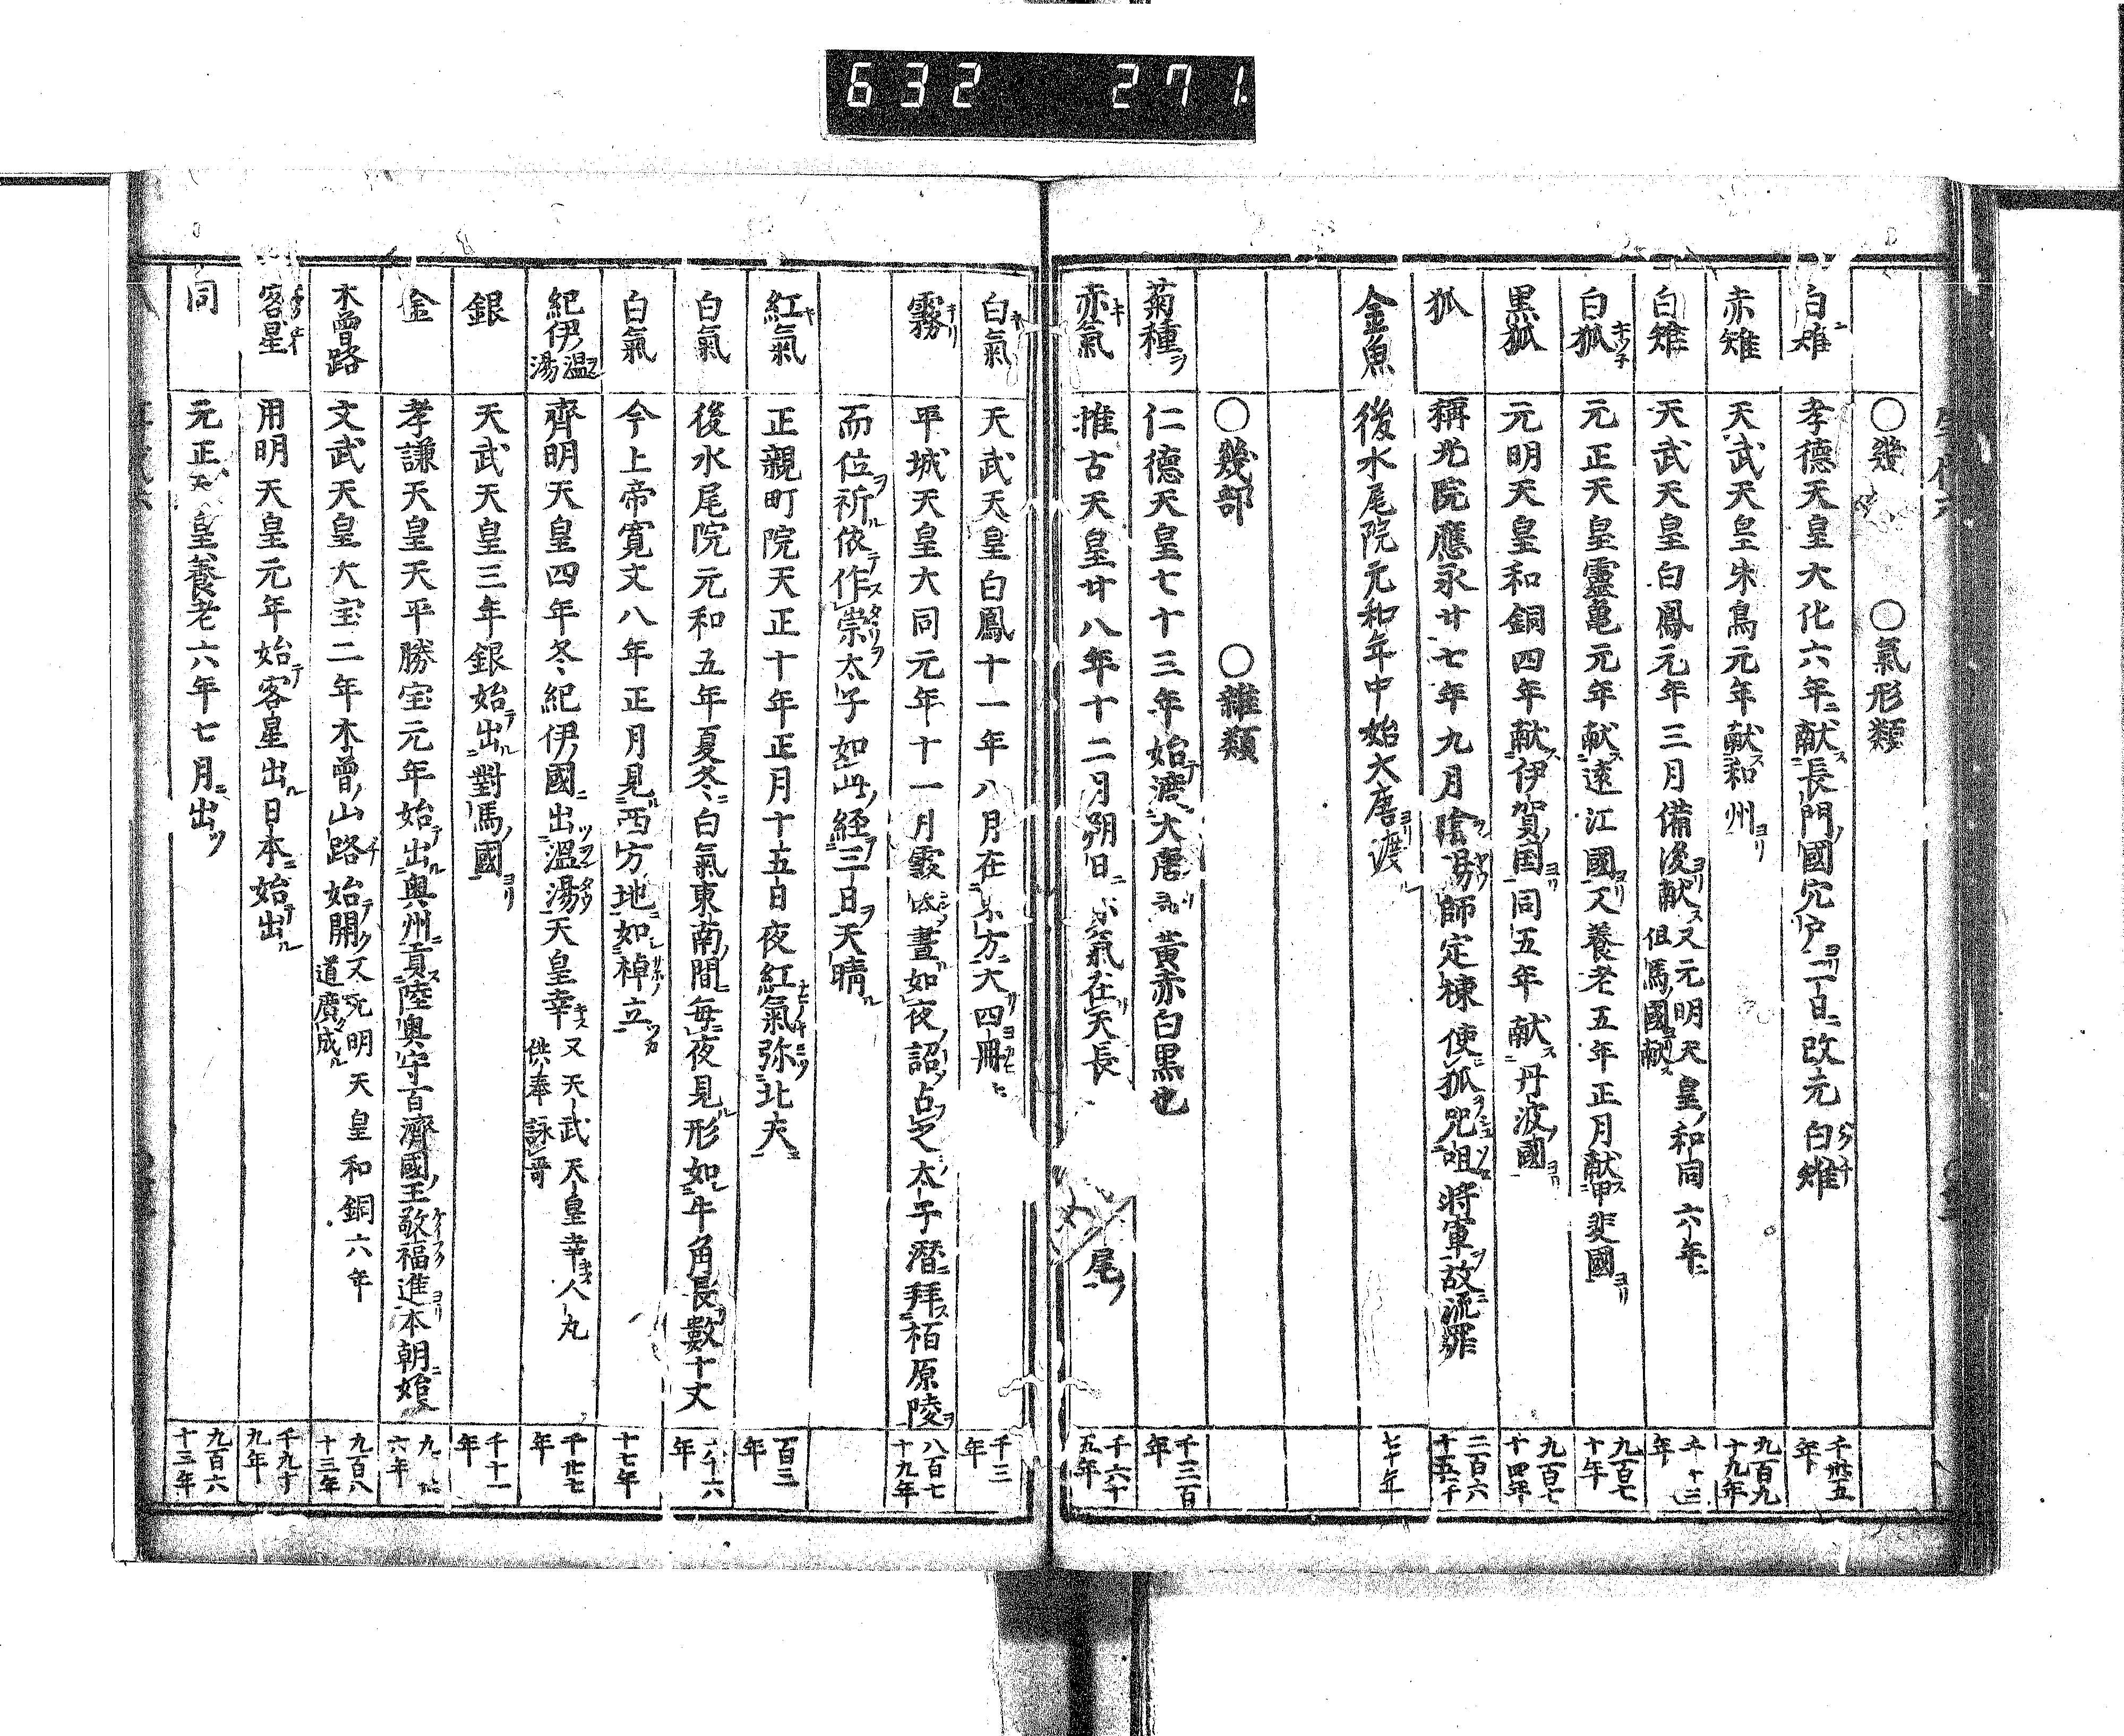 632 271.
○幾 ○氣形類
白雉 孝德天皇大化六年献長門國穴戸二日改元白雉 千卅五年
赤雉 天武天皇朱鳥元年献和州 九百九十九年
白雉 天武天皇白鳳元年三月備後献又元明天皇和同六年但馬國献 千十三年
白狐 元正天皇靈亀元年献遠江國又養老五年正月献甲斐國 九百七十年
黒狐 元明天皇和銅四年献伊賀国同五年献丹波國 九百七十四年
狐 稱光院應永廿七年九月陰昜師定棟使狐咒咀將軍故流罪 二百六十五年
金魚 後水尾院元和年中始大唐渡 七十年
○幾部 ○雜類
菊種 仁德天皇七十三年始渡大唐黃赤白黒也 千三百年
赤氣 推古天皇廿八年十二月朔日氣在天長尾 千六十五年
白氣 天武天皇白鳳十一年八月在方大四 千三年
霧 平城天皇大同元年十一月晝如夜詔占之太子暦拜栢原陵 八百七十九年
而位祈依作崇太子如此経三日天晴
紅氣 正親町院天正十年正月十五日夜紅氣弥北天 百三年
白氣 後水尾院元和五年夏冬白氣東南間每夜見形如牛角長數十丈 六十六年
白氣 今上帝寛文八年正月見西方地如棹立 十七年
紀伊温湯 齊明天皇四年冬紀伊國出温湯天皇幸又天武天皇幸人丸供奉詠哥 千廿七年
銀 天武天皇三年銀始出對馬國 千十一年
金 孝謙天皇天平勝宝元年始出奥州貢陸奥守百濟國王敬福進本朝始 九六年
木曾路 文武天皇大宝二年木曾山路始開又元明天皇和銅六年道廣成 九百八十三年
客星 用明天皇元年始客星出日本始出 千九十九年
同 元正天皇養老六年七月出 九百六十三年